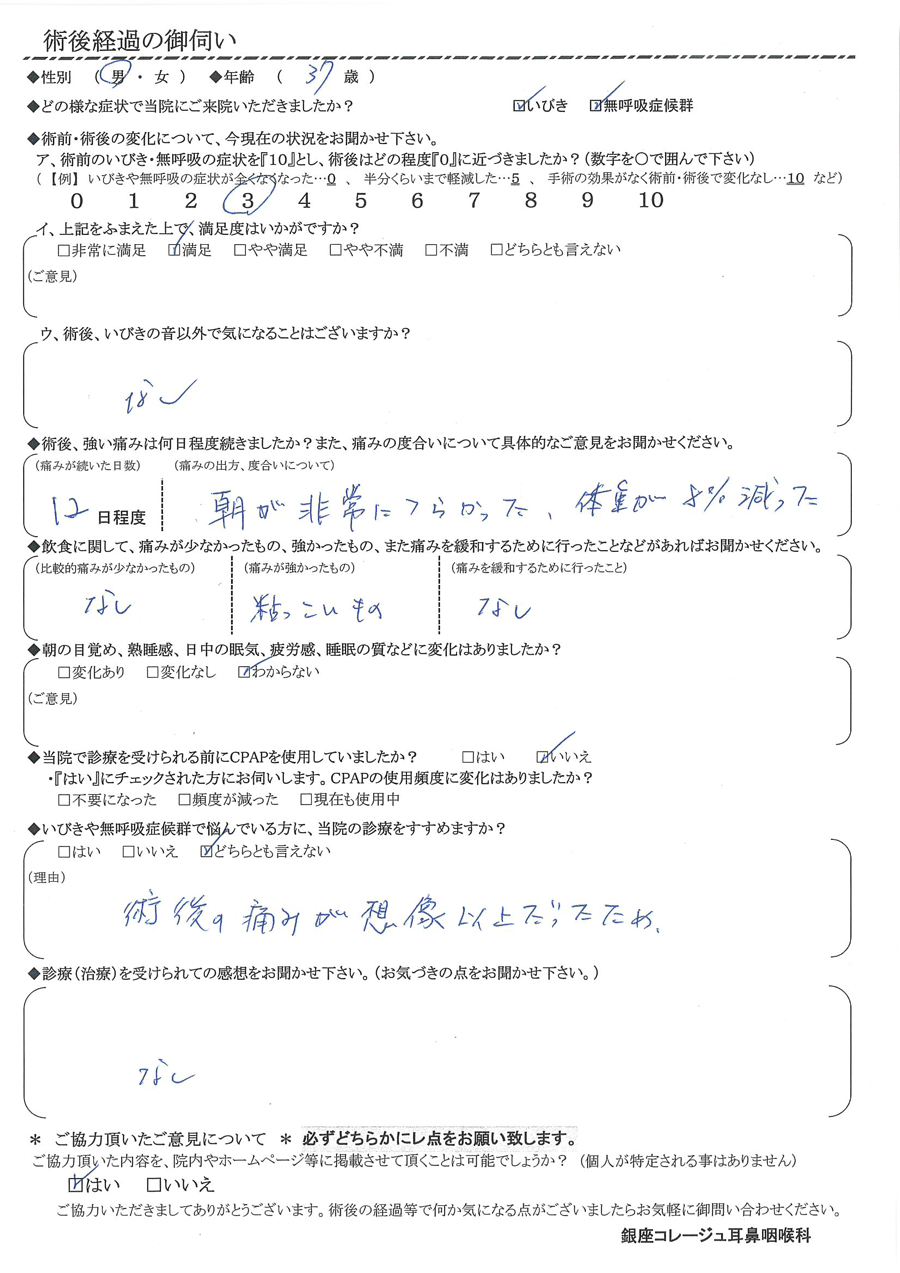 術後経過の御伺い
◆性別 ( 男 ・ 女 ) ◆年齢 ( 37 歳 )
◆どの様な症状で当院にご来院いただきましたか? ☑いびき ☑無呼吸症候群
◆術前・術後の変化について、今現在の状況をお聞かせ下さい。
ア、術前のいびき・無呼吸の症状を『10』とし、術後はどの程度『0』に近づきましたか?(数字を○で囲んで下さい)
(【例】いびきや無呼吸の症状が全くなくなった…0 、 半分くらいまで軽減した…5 、 手術の効果がなく術前・術後で変化なし…10 など)
0 1 2 3 4 5 6 7 8 9 10
イ、上記をふまえた上で、満足度はいかがですか?
□非常に満足 ☑満足 □やや満足 □やや不満 □不満 □どちらとも言えない
(ご意見)
ウ、術後、いびきの音以外で気になることはございますか?
なし
◆術後、強い痛みは何日程度続きましたか?また、痛みの度合いについて具体的なご意見をお聞かせください。
(痛みが続いた日数) (痛みの出方、度合いについて)
12 日程度 朝が非常につらかった、体重が8%減った
◆飲食に関して、痛みが少なかったもの、強かったもの、また痛みを緩和するために行ったことなどがあればお聞かせください。
(比較的痛みが少なかったもの) (痛みが強かったもの) (痛みを緩和するために行ったこと)
なし 粘っこいもの なし
◆朝の目覚め、熟睡感、日中の眠気、疲労感、睡眠の質などに変化はありましたか?
□変化あり □変化なし ☑わからない
(ご意見)
◆当院で診療を受けられる前にCPAPを使用していましたか? □はい ☑いいえ
・『はい』にチェックされた方にお伺いします。CPAPの使用頻度に変化はありましたか?
□不要になった □頻度が減った □現在も使用中
◆いびきや無呼吸症候群で悩んでいる方に、当院の診療をすすめますか?
□はい □いいえ ☑どちらとも言えない
(理由)
術後の痛みが想像以上だったため、
◆診療(治療)を受けられての感想をお聞かせ下さい。(お気づきの点をお聞かせ下さい。)
なし
* ご協力頂いたご意見について * 必ずどちらかにレ点をお願い致します。
ご協力頂いた内容を、院内やホームページ等に掲載させて頂くことは可能でしょうか? (個人が特定される事はありません)
☑はい □いいえ
ご協力いただきましてありがとうございます。術後の経過等で何か気になる点がございましたらお気軽に御問い合わせください。
銀座コレージュ耳鼻咽喉科